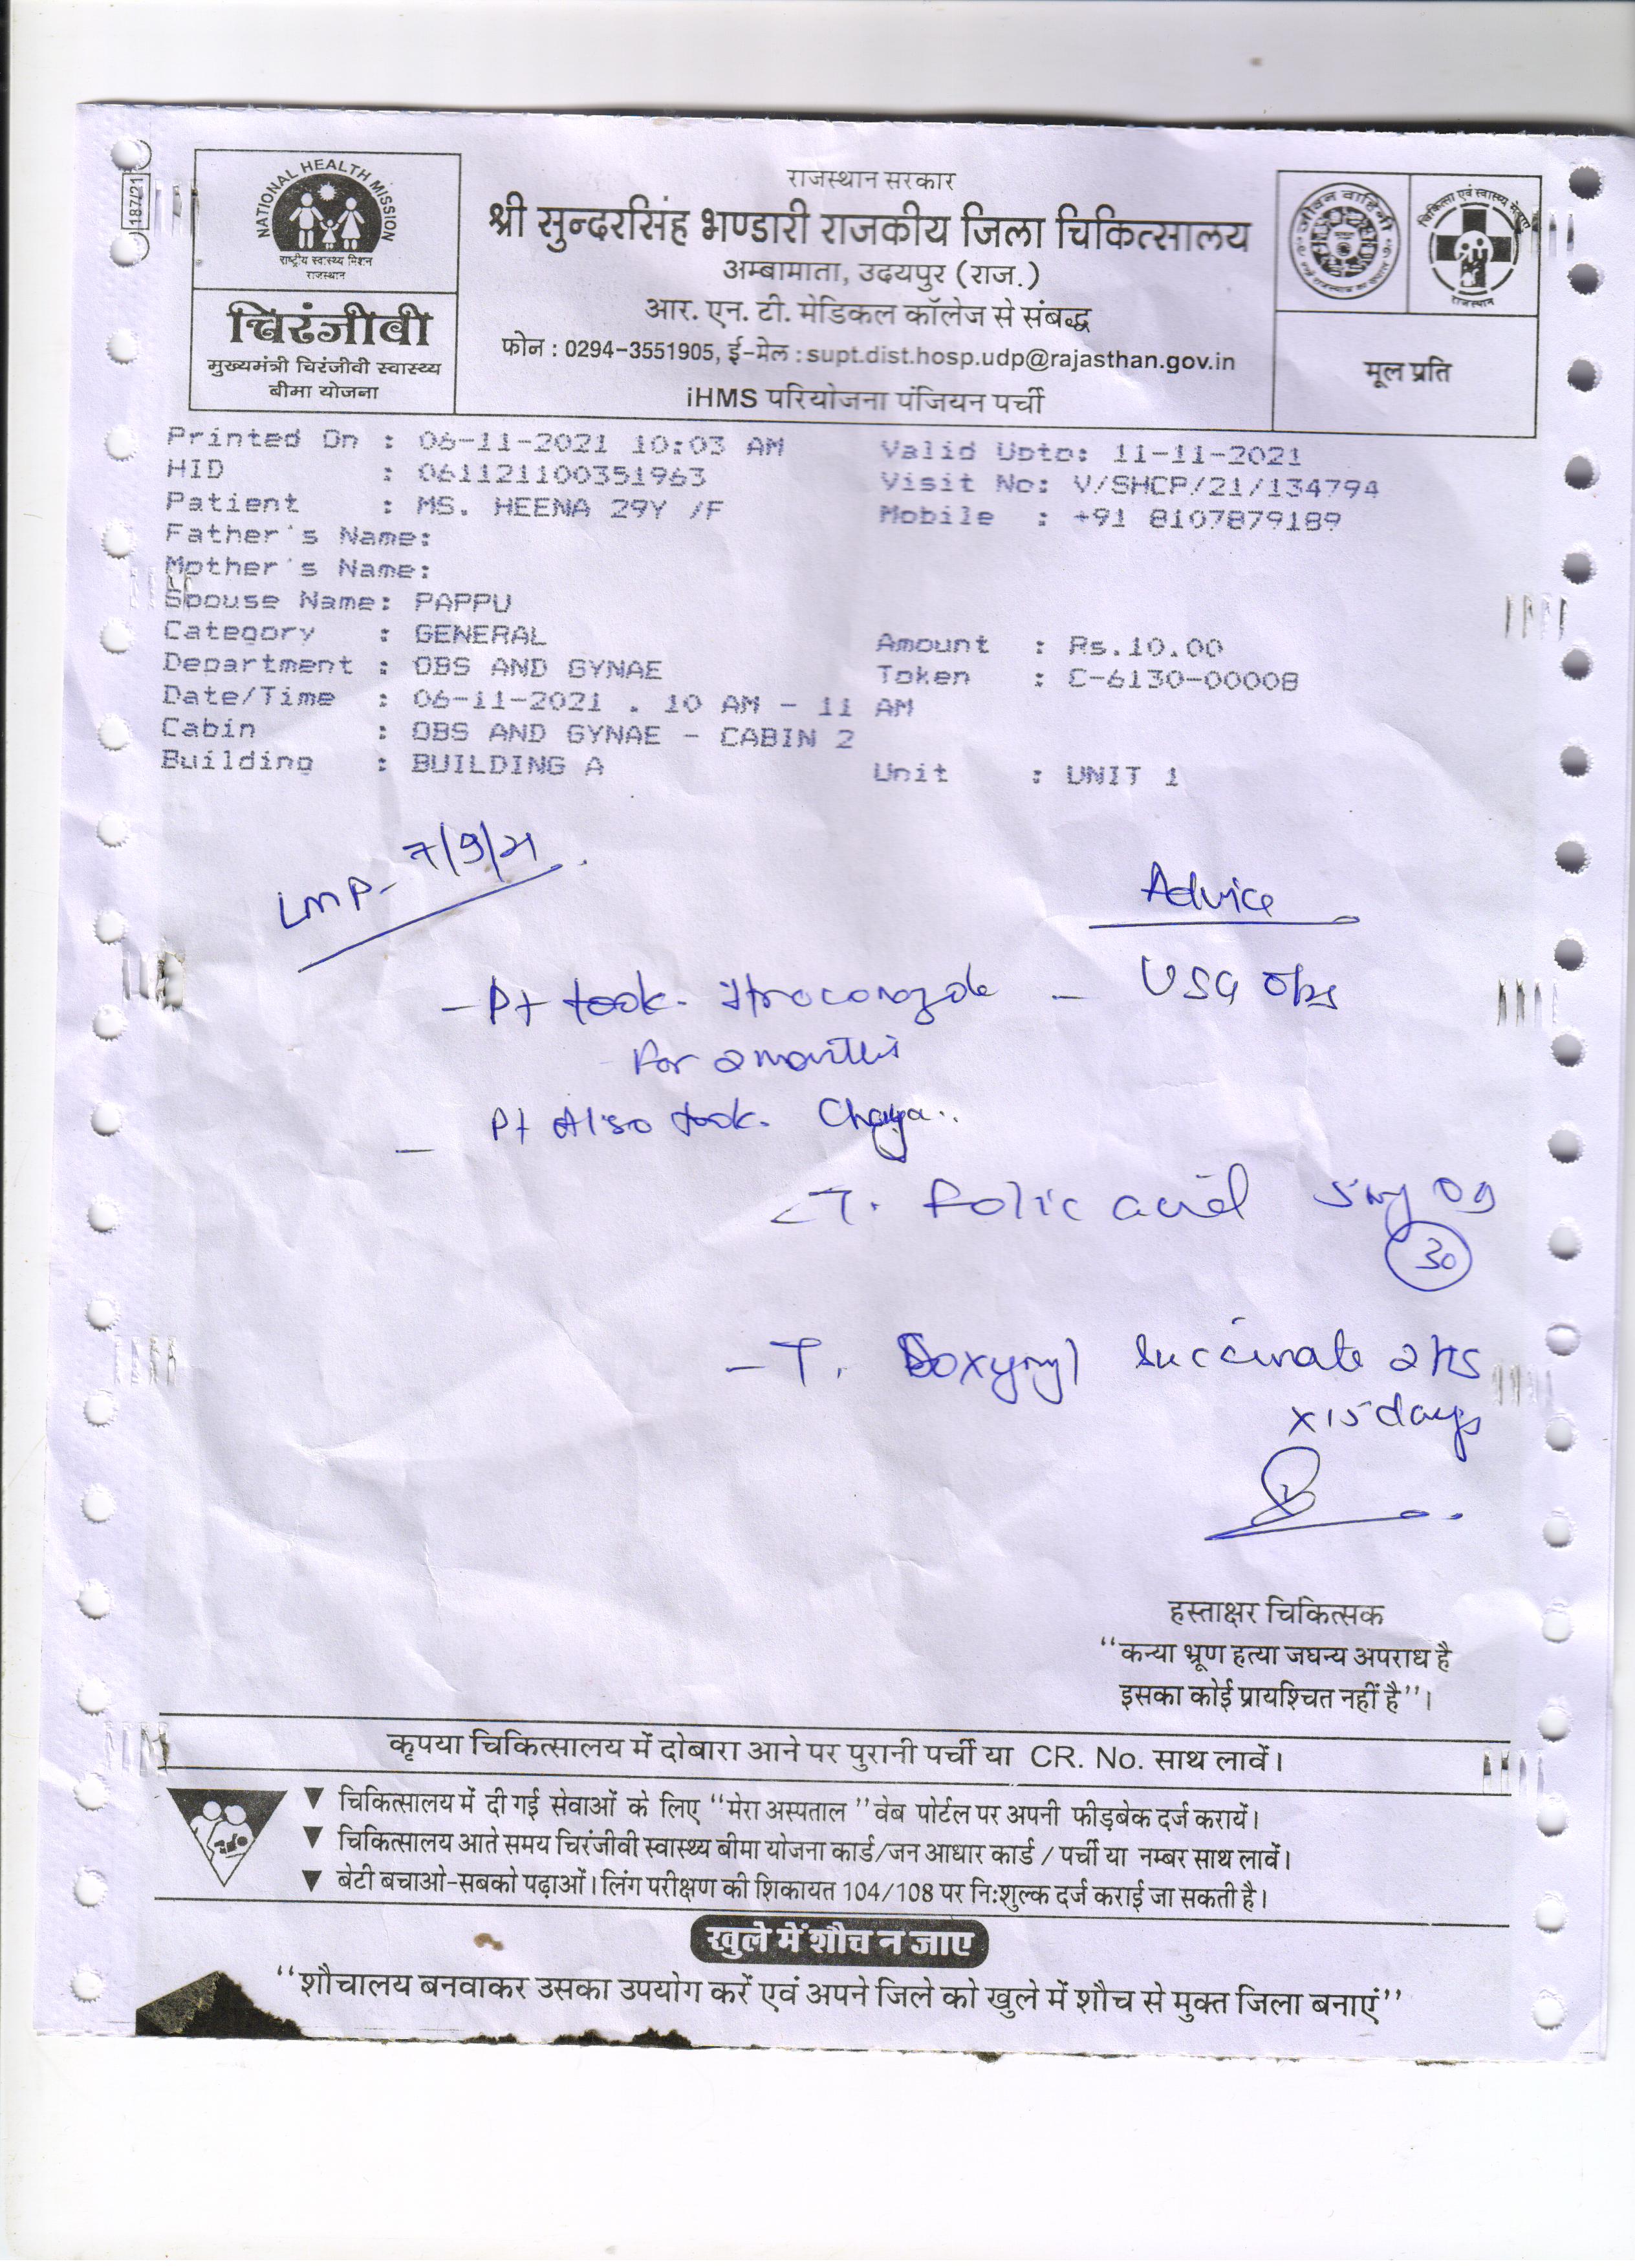 187/21
NATIONAL HEALTH MISSION
राष्ट्रीय स्वास्थ्य मिशन
राजस्थान
चिरंजीवी
मुख्यमंत्री चिरंजीवी स्वास्थ्य
बीमा योजना
राजस्थान सरकार
श्री सुन्दरसिंह भण्डारी राजकीय जिला चिकित्सालय
अम्बामाता, उदयपुर (राज.)
आर. एन. टी. मेडिकल कॉलेज से संबद्ध
फोन : 0294-3551905, ई-मेल : supt.dist.hosp.udp@rajasthan.gov.in
iHMS परियोजना पंजियन पर्ची
जीवन वाहिनी
चिकित्सा एवं स्वास्थ्य
राजस्थान
मूल प्रति
Printed On : 06-11-2021 10:03 AM Valid Upto: 11-11-2021
HID : 061121100351963 Visit No: V/SHCP/21/134794
Patient : MS. HEENA 29Y /F Mobile : +91 8107879189
Father's Name:
Mother's Name:
Spouse Name: PAPPU
Category : GENERAL Amount : Rs.10.00
Department : OBS AND GYNAE Token : C-6130-00008
Date/Time : 06-11-2021 . 10 AM - 11 AM
Cabin : OBS AND GYNAE - CABIN 2
Building : BUILDING A Unit : UNIT 1
LMP- 7/9/21
Advice
- Pt took itroconozole - USG Obs
for 2 months
- Pt Also took Chaya..
T. folic acid 5mg OD
30
- T. Doxynyl succinate 2HS
x 15 days
हस्ताक्षर चिकित्सक
“कन्या भ्रूण हत्या जघन्य अपराध है
इसका कोई प्रायश्चित नहीं है”।
कृपया चिकित्सालय में दोबारा आने पर पुरानी पर्ची या CR. No. साथ लावें।
▼ चिकित्सालय में दी गई सेवाओं के लिए “मेरा अस्पताल” वेब पोर्टल पर अपनी फीड़बेक दर्ज करायें।
▼ चिकित्सालय आते समय चिरंजीवी स्वास्थ्य बीमा योजना कार्ड/जन आधार कार्ड / पर्ची या नम्बर साथ लावें।
▼ बेटी बचाओ-सबको पढ़ाओं। लिंग परीक्षण की शिकायत 104/108 पर नि:शुल्क दर्ज कराई जा सकती है।
खुले में शौच न जाए
“शौचालय बनवाकर उसका उपयोग करें एवं अपने जिले को खुले में शौच से मुक्त जिला बनाएं”